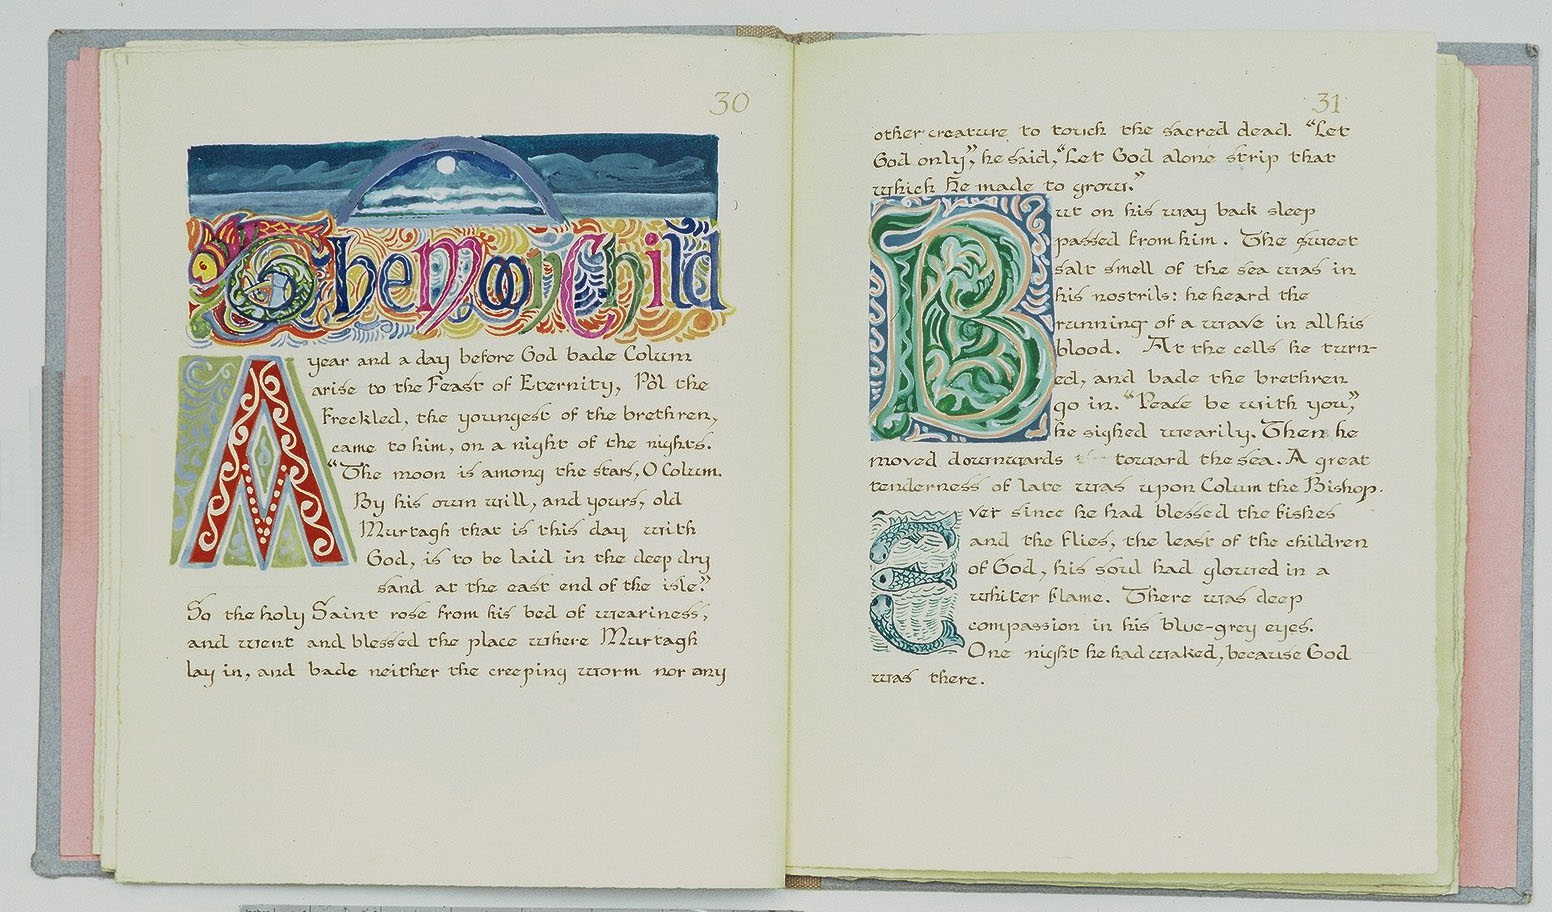 30
The Moon Child
A year and a day before God bade Colum
arise to the Feast of Eternity, Pòl the
Freckled, the youngest of the brethren,
came to him, on a night of the nights.
"The moon is among the stars, O Colum.
By his own will, and yours, old
Murtagh that is this day with
God, is to be laid in the deep dry
sand at the east end of the isle."
So the holy Saint rose from his bed of weariness,
and went and blessed the place where Murtagh
lay in, and bade neither the creeping worm nor any
31
other creature to touch the sacred dead. "Let
God only", he said, "Let God alone strip that
which he made to grow."
But on his way back sleep
passed from him. The sweet
salt smell of the sea was in
his nostrils: he heard the
running of a wave in all his
blood. At the cells he turn-
ed, and bade the brethren
go in. "Peace be with you",
he sighed wearily. Then he
moved downwards toward the sea. A great
tenderness of late was upon Colum the Bishop.
Ever since he had blessed the fishes
and the flies, the least of the children
of God, his soul had glowed in a
whiter flame. There was deep
compassion in his blue-grey eyes.
One night he had waked, because God
was there.